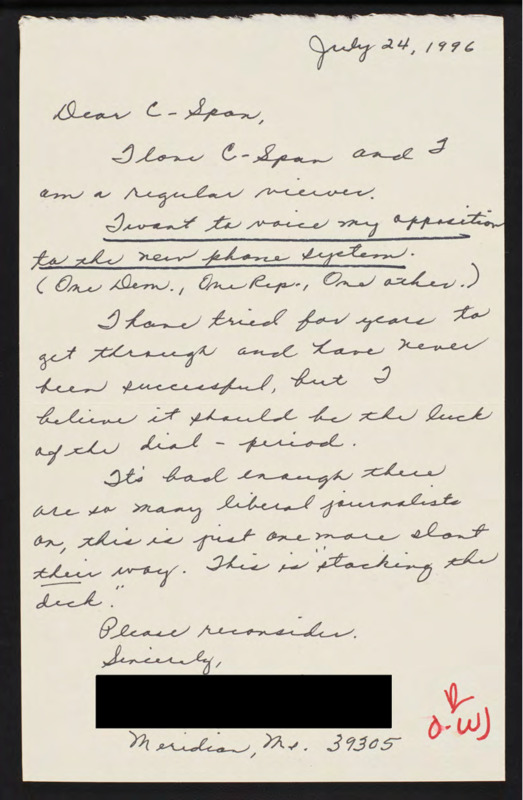 July 24, 1996
Dear C-Span,
I love C-Span and I
am a regular viewer.
I want to voice my opposition
to the new phone system.
(One Dem., One Rep., One other.)
I have tried for years to
get through and have never
been successful, but I
believe it should be the luck
of the dial - period.
It's bad enough there
are so many liberal journalists
on, this is just one more slant
their way. This is "stacking the
deck."
Please reconsider.
Sincerely,
Meridian, Ms. 39305